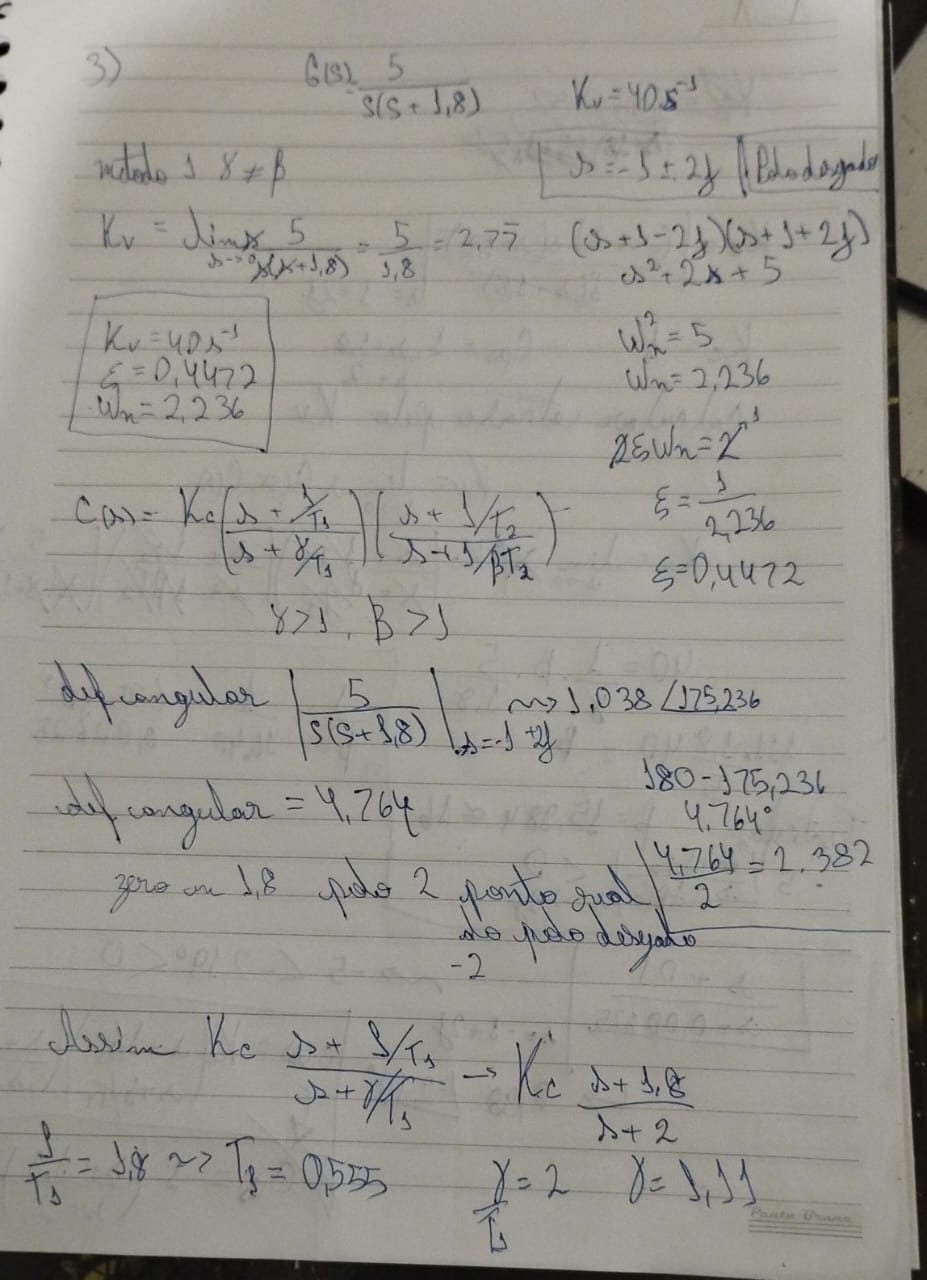 3) G(s) = 5 / s(s + 1,8) Kv = 40 s^-1
método 1 γ ≠ β s = -1 ± 2j
Kv = lim s→0 s 5 / s(s+1,8) = 5 / 1,8 = 2,77 (s+1-2j)(s+1+2j)
s² + 2s + 5
Kv = 40 s^-1
ξ = 0,4472
Wn = 2,236
Wn² = 5
Wn = 2,236
2ξWn = 2 1
ξ = 1 / 2,236
ξ = 0,4472
C(s) = Kc (s + 1/T1 / s + γ/T1) (s + 1/T2 / s + 1/βT2)
γ > 1, β > 1
def angular | 5 / s(s+1,8) | s = -1 + 2j ~> 1,038 ∠175,236
180 - 175,236
4,764°
def angular = 4,764
4,764 / 2 = 2.382
zero em 1,8 polo 2 ponto
do polo desejado
-2
Assim Kc s + 1/T1 / s + γ/T1 → Kc s + 1,8 / s + 2
1 / T1 = 1,8 ~> T1 = 0,555 γ / T1 = 2 γ = 1,11